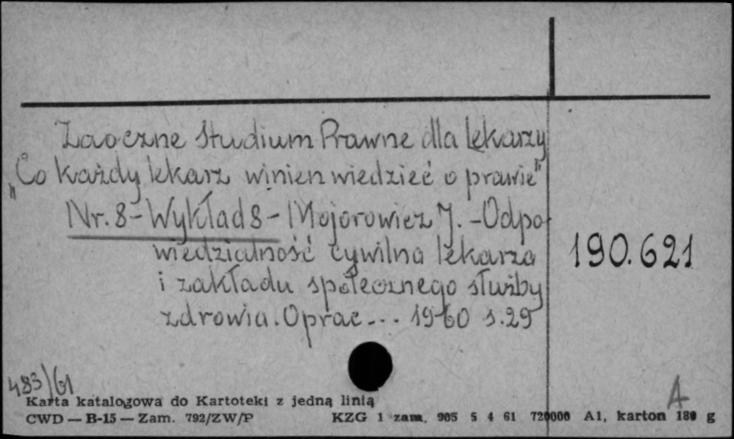 Zaoczne Studium Prawne dla lekarzy
"Co każdy lekarz winien wiedzieć o prawie"
Nr. 8 - Wykład 8 - Majorowicz J. - Odpo
wiedzialność cywilna lekarza
i zakładu społecznego służby
zdrowia. Oprac... 1960 s. 29
190.621
483/61
A
Karta katalogowa do Kartoteki z jedną linią
CWD — B-15 — Zam. 792/ZW/P KZG 1 zam. 905 5 4 61 720000 A1, karton 180 g